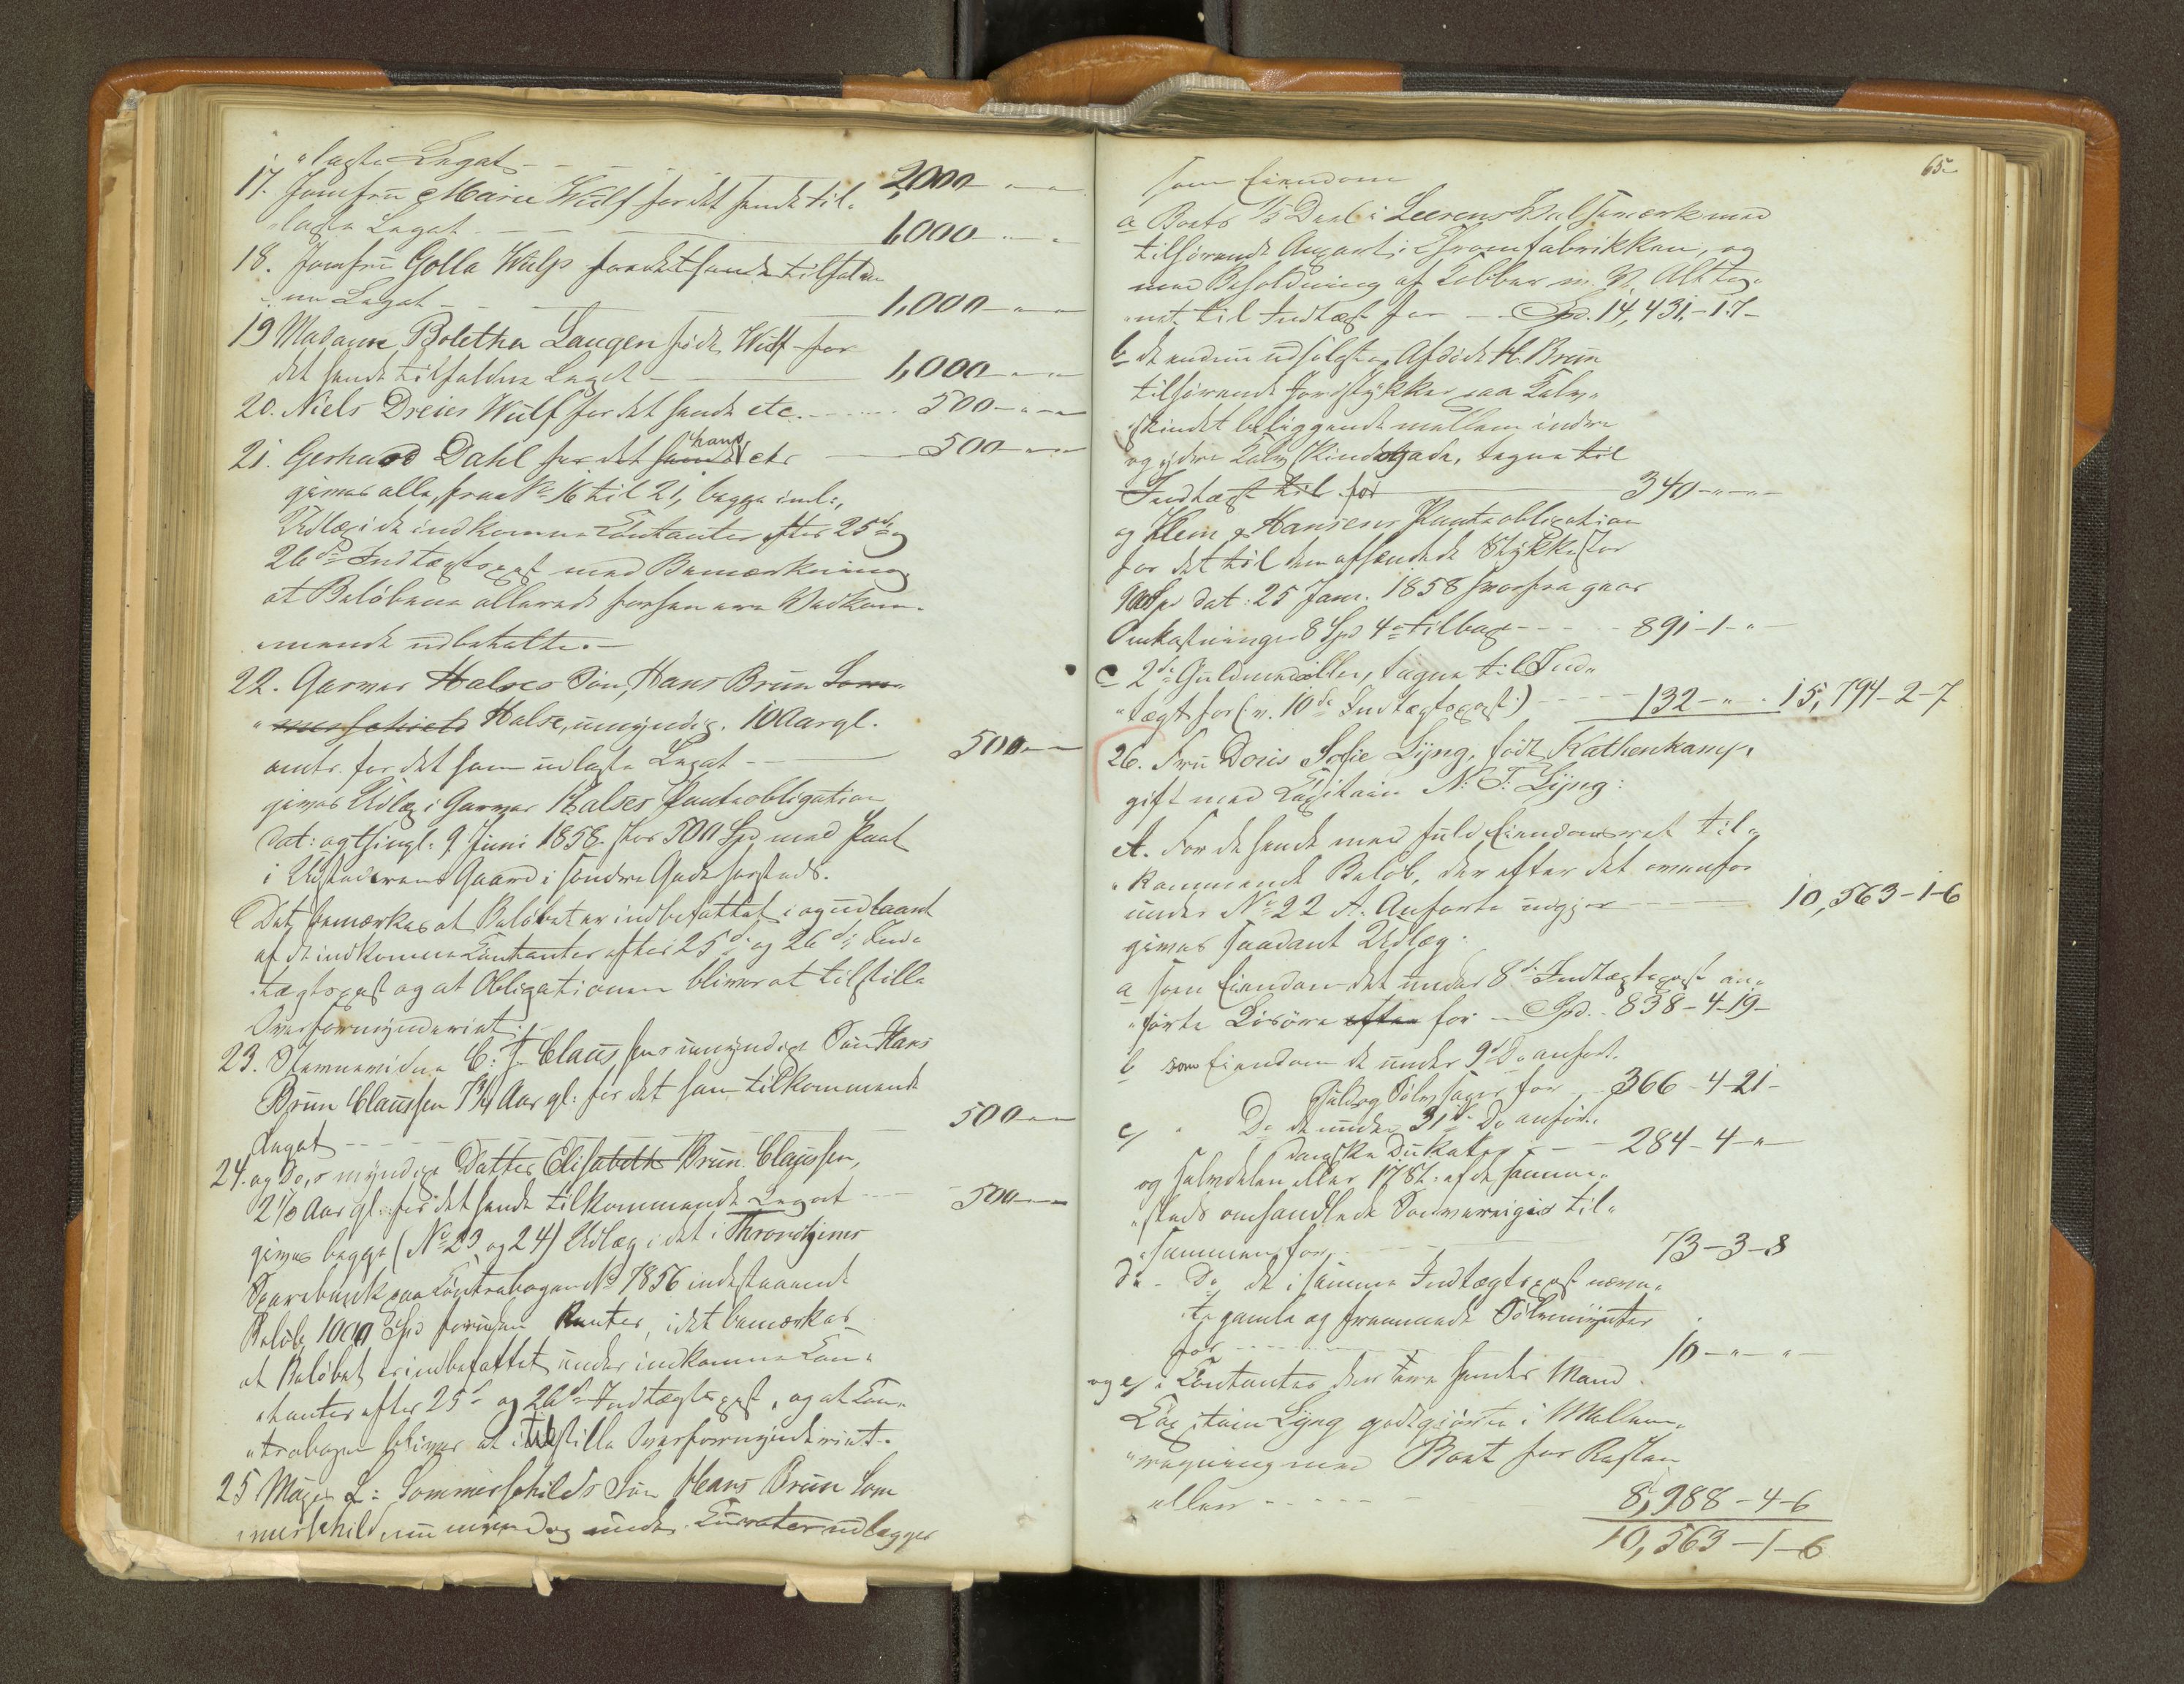 lagte Legat - - - 2,000 - " - "
17. Jomfru Maria Wulf for det hende til-
lagte Legat - - 1,000 - " - "
18. Jomfru Golla Wulf for det hende tilfald-
ne Legat - - 1,000 - " - "
19 Madame Boletha Langen fødte Wulf for
det hende tilfaldne Legat - 1,000 - " - "
20. Niels Dreier Wulf for det hende etc. - - 500 - " - "
21. Gerhard Dahl for det hende ham etc 500 - " - "
gives alle, fra No 16 til 21, begge incl:,
Udlæg i de indkomne Contanter efter 25de og
26de Indtægtspost med Bemærkning
at Beløbene allerede forhen ere Vedkom-
mende udbetalte. -
22. Garver Halses Søn, Hans Brun Som-
merschield Halse, umyndig, 10 Aar gl.
omtr. for det ham udlagte Legat - 500 - " -
gives Udlæg i Garver Halses Panteobligation
dat: og thingl: 9 Juni 1858 stor 500 Spd med Pant
i Udstederens Gaard i søndre Gade hersteds.
Det bemærkes at Beløbet er indbefattet i og udlaant
af de indkomne Contanter efter 25de og 26de Ind-
tægtspost og at Obligationen bliver at tilstille
Overformynderiet. -
23. C: F. Claussens umyndige Søn Hans
Brun Claussen 7 3/4 Aar gl: for det ham tilkommende
Legat - - - 500 - " -
24. og Do, umyndige Datter Elisabeth Brun Claussen,
2 1/2 Aar gl: for det hende tilkommende Legat - 500 - " -
gives begge (No 23 og 24) Udlæg i det i Throndhjems
Sparebank paa Contrabogen No 7856 indestaaende
Beløb 1000 Spd foruden Renter, idet bemærkes
at Beløbet er indbefattet under indkomne Con-
tanter efter 25de og 26de Indtægtspost, og at Con-
trabogen bliver at tilstille Overformynderiet. -
25 L: Sommerschilds Søn Hans Brun Som
merschild umyndig under Curator udlægges
65
som Eiendom
a Boets 1/5 Deel i Leerens Valseværk med
tilhørende Anpart i Chromfabrikken, og
med Beholdning af Kobber m. V. Alt tag-
net til Indtægt for - - Spd. 14,431 - 17 -
b de endnu usolgte, Afdøde H. Brun
tilhørende Jordstykker paa Kalv-
skindet beliggende mellem indre
og ydre Kalvskindsgade, tagne til
Indtægt til for 340 - " - " -
og Klem & Hansens Panteobligation
for det til dem afhændede Stykke stor
900 Spd dat: 25 Janr. 1858 hvorfra gaar
Omkostninger 8 Spd 4 tilbage - - - 891 - 1 - " -
c 2de Guldmedailler, tagne til Ind-
tægt for (v. 10de Indtægtspost) - - - 132 - " - 15,794 - 2 - 7
26. Fru Doris Sofie Lyng, født Kathenkamp,
gift med Capitain N: F: Lyng:
A. For de hende med fuld Eiendomsret til-
kommende Beløb, der efter det ovenfor
under No 22 A. Anførte udgjør - - - 10,563 - 1 - 6
gives saadant Udlæg:
a som Eiendom det under 8de Indtægtspost an-
førte Løsøre efter for - Spd. - 838 - 4 - 19 -
b som Eiendom de under 9de Do anført.
Guld og Sølvsager for - 366 - 4 - 21 -
c/ " Do de under 31te Do anførte
danske Dukater - - 284 - 4 - " -
og halvdelen eller 17 St: af de samme-
steds omhandlede Souvereigns til-
sammen for - 73 - 3 - 8
d: - Do de i samme Indtægtspost nævn-
te gamle og fremmede Sølvmynter
for - - - 10 - " - " -
og e/ i Contanter hendes Mand
Capitain Lyng godtgjørte i Mellem-
regning med Boet for Resten
eller - - - - 8,988 - 4 - 6
10,563 - 1 - 6